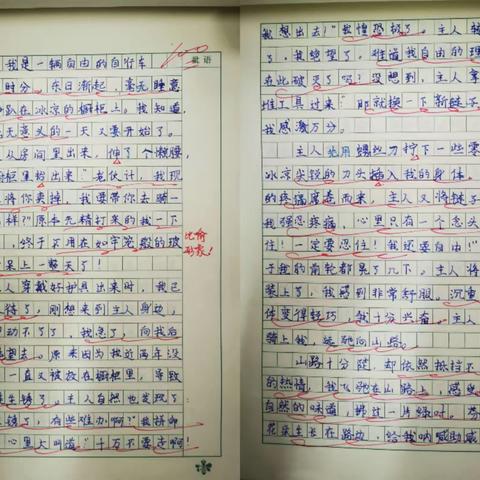 我是一辆自由的自行车
批语
时分，东日渐起，毫无睡意
趴在冰凉的橱柜上。我知道，
无意义的一天又要开始了。
从房间里出来，伸了个懒腰，
橱柜里的出来"老伙计，我现
将你卖掉，我要带你去骑一
样？"原本无精打采的我一下
，终于不用在如牢笼般的玻
呆上一整天了！
比喻
形象！
穿戴好护具出来时，我已
待了，刚想来到主人身边，
动不了了，我急了，向我后
望去。原来因为我近两年没
一直又被放在橱柜里，导致
生锈了，主人自然也发现了
锈了，有些难办啊？"我拼命
心里大叫道"千万不要走啊！
我想出去！"我惶恐极了。主人转
了，我绝望了，难道我自由的理
在此破灭了吗？没想到，主人拿
堆工具过来"那就换一下新链子
我感激万分。
主人先用螺丝刀拧下一些零
冰凉尖锐的刀头插入我的身体，
的疼痛席卷而来，主人又将链子
我强忍疼痛，心里只有一个念头
住！一定要忍住！我还要自由！"
于我的前轮都晃了几下。主人将
装上了，我感到非常舒服，沉重
体变得轻巧，我十分兴奋。主人
骑上我，远驰向山路。
山路十分陡，却依然抵挡不
的热情，我飞驰在山路上，感受
自然的味道，拂过一片绿叶。
花朵生长在路边，给我呐喊助威